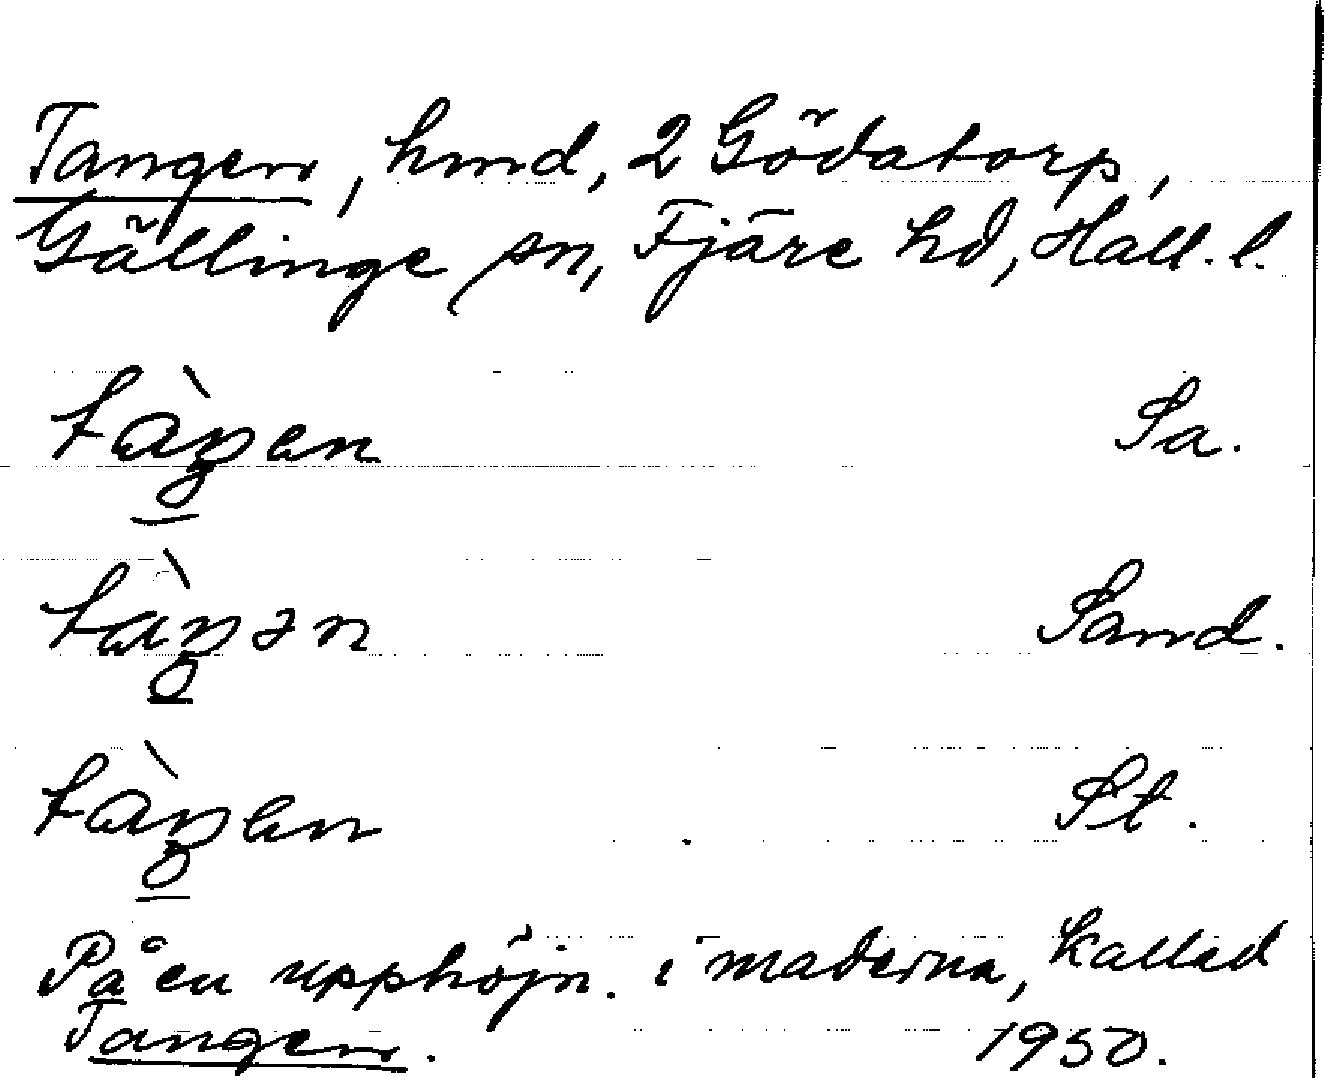 Tangen, hmd, 2 Gödatorp,
Gällinge sn, Fjäre hd, Hall. l.
tàŋen Sa.
tàŋən Sand.
tàŋen St.
På en upphöjn. i maderna, kallad
Tangen. 1950.